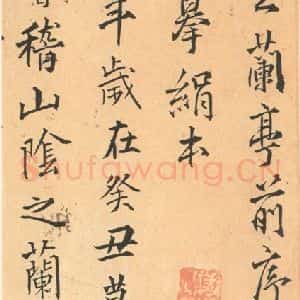 蘭亭前序
摹絹本
年歲在癸丑
稽山陰之蘭
Shufawang.CN